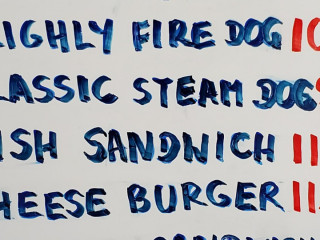 IGHLY FIRE DOG 10
LASSIC STEAM DOG
ISH SANDWICH 11
HEESE BURGER 11